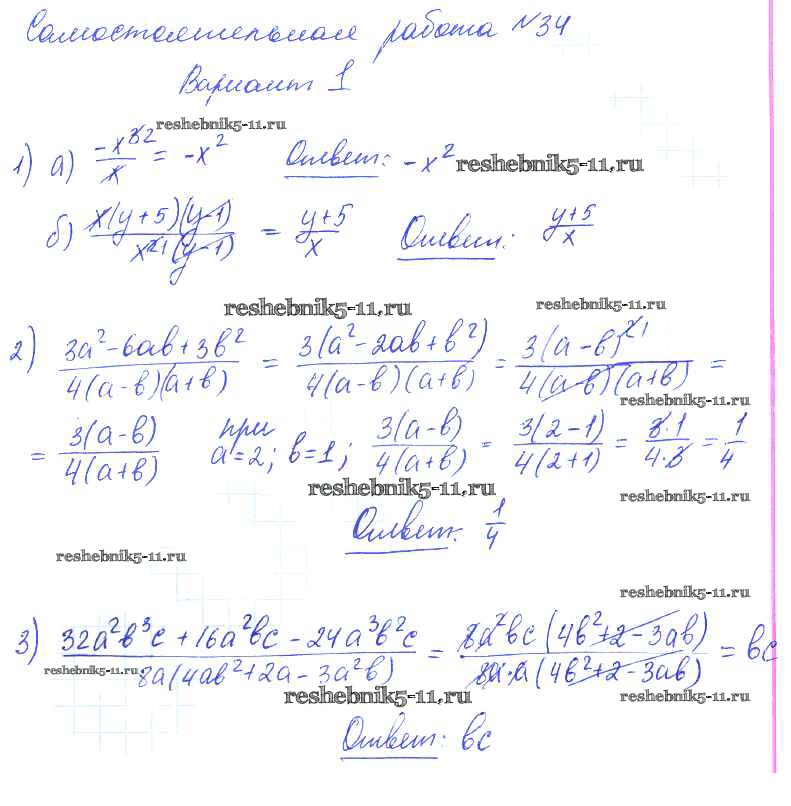 Самостоятельная работа №34
Вариант 1
reshebnik5-11.ru
1) а) -x^3 2/x = -x^2 Ответ: -x^2
reshebnik5-11.ru
б) x(y+5)(y-1)/x^2 1(y-1) = y+5/x Ответ: y+5/x
reshebnik5-11.ru
reshebnik5-11.ru
2) 3a^2-6ab+3b^2/4(a-b)(a+b) = 3(a^2-2ab+b^2)/4(a-b)(a+b) = 3(a-b)^2 1/4(a-b)(a+b) =
reshebnik5-11.ru
= 3(a-b)/4(a+b) при a=2; b=1; 3(a-b)/4(a+b) = 3(2-1)/4(2+1) = 3·1/4·3 = 1/4
reshebnik5-11.ru
reshebnik5-11.ru
Ответ: 1/4
reshebnik5-11.ru
reshebnik5-11.ru
3) 32a^2b^3c+16a^2bc-24a^3b^2c/8a(4ab^2+2a-3a^2b) = 8a^2bc(4b^2+2-3ab)/8a·a(4b^2+2-3ab) = bc
reshebnik5-11.ru
reshebnik5-11.ru
reshebnik5-11.ru
Ответ: bc